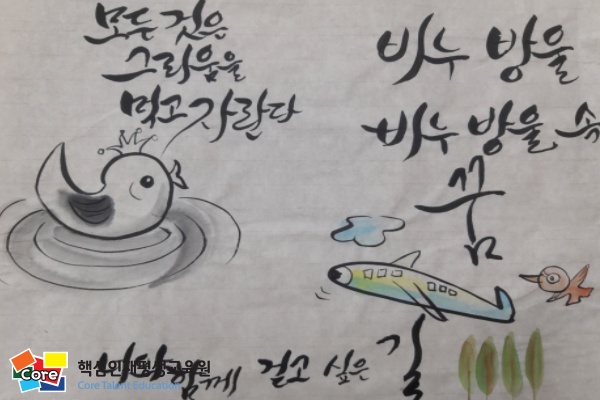 모든 것은
그리움을
먹고 자란다
비누 방울
비누 방울 속
꿈
함께 걷고 싶은 길
Core
핵심인재평생교육원
Core Talent Education